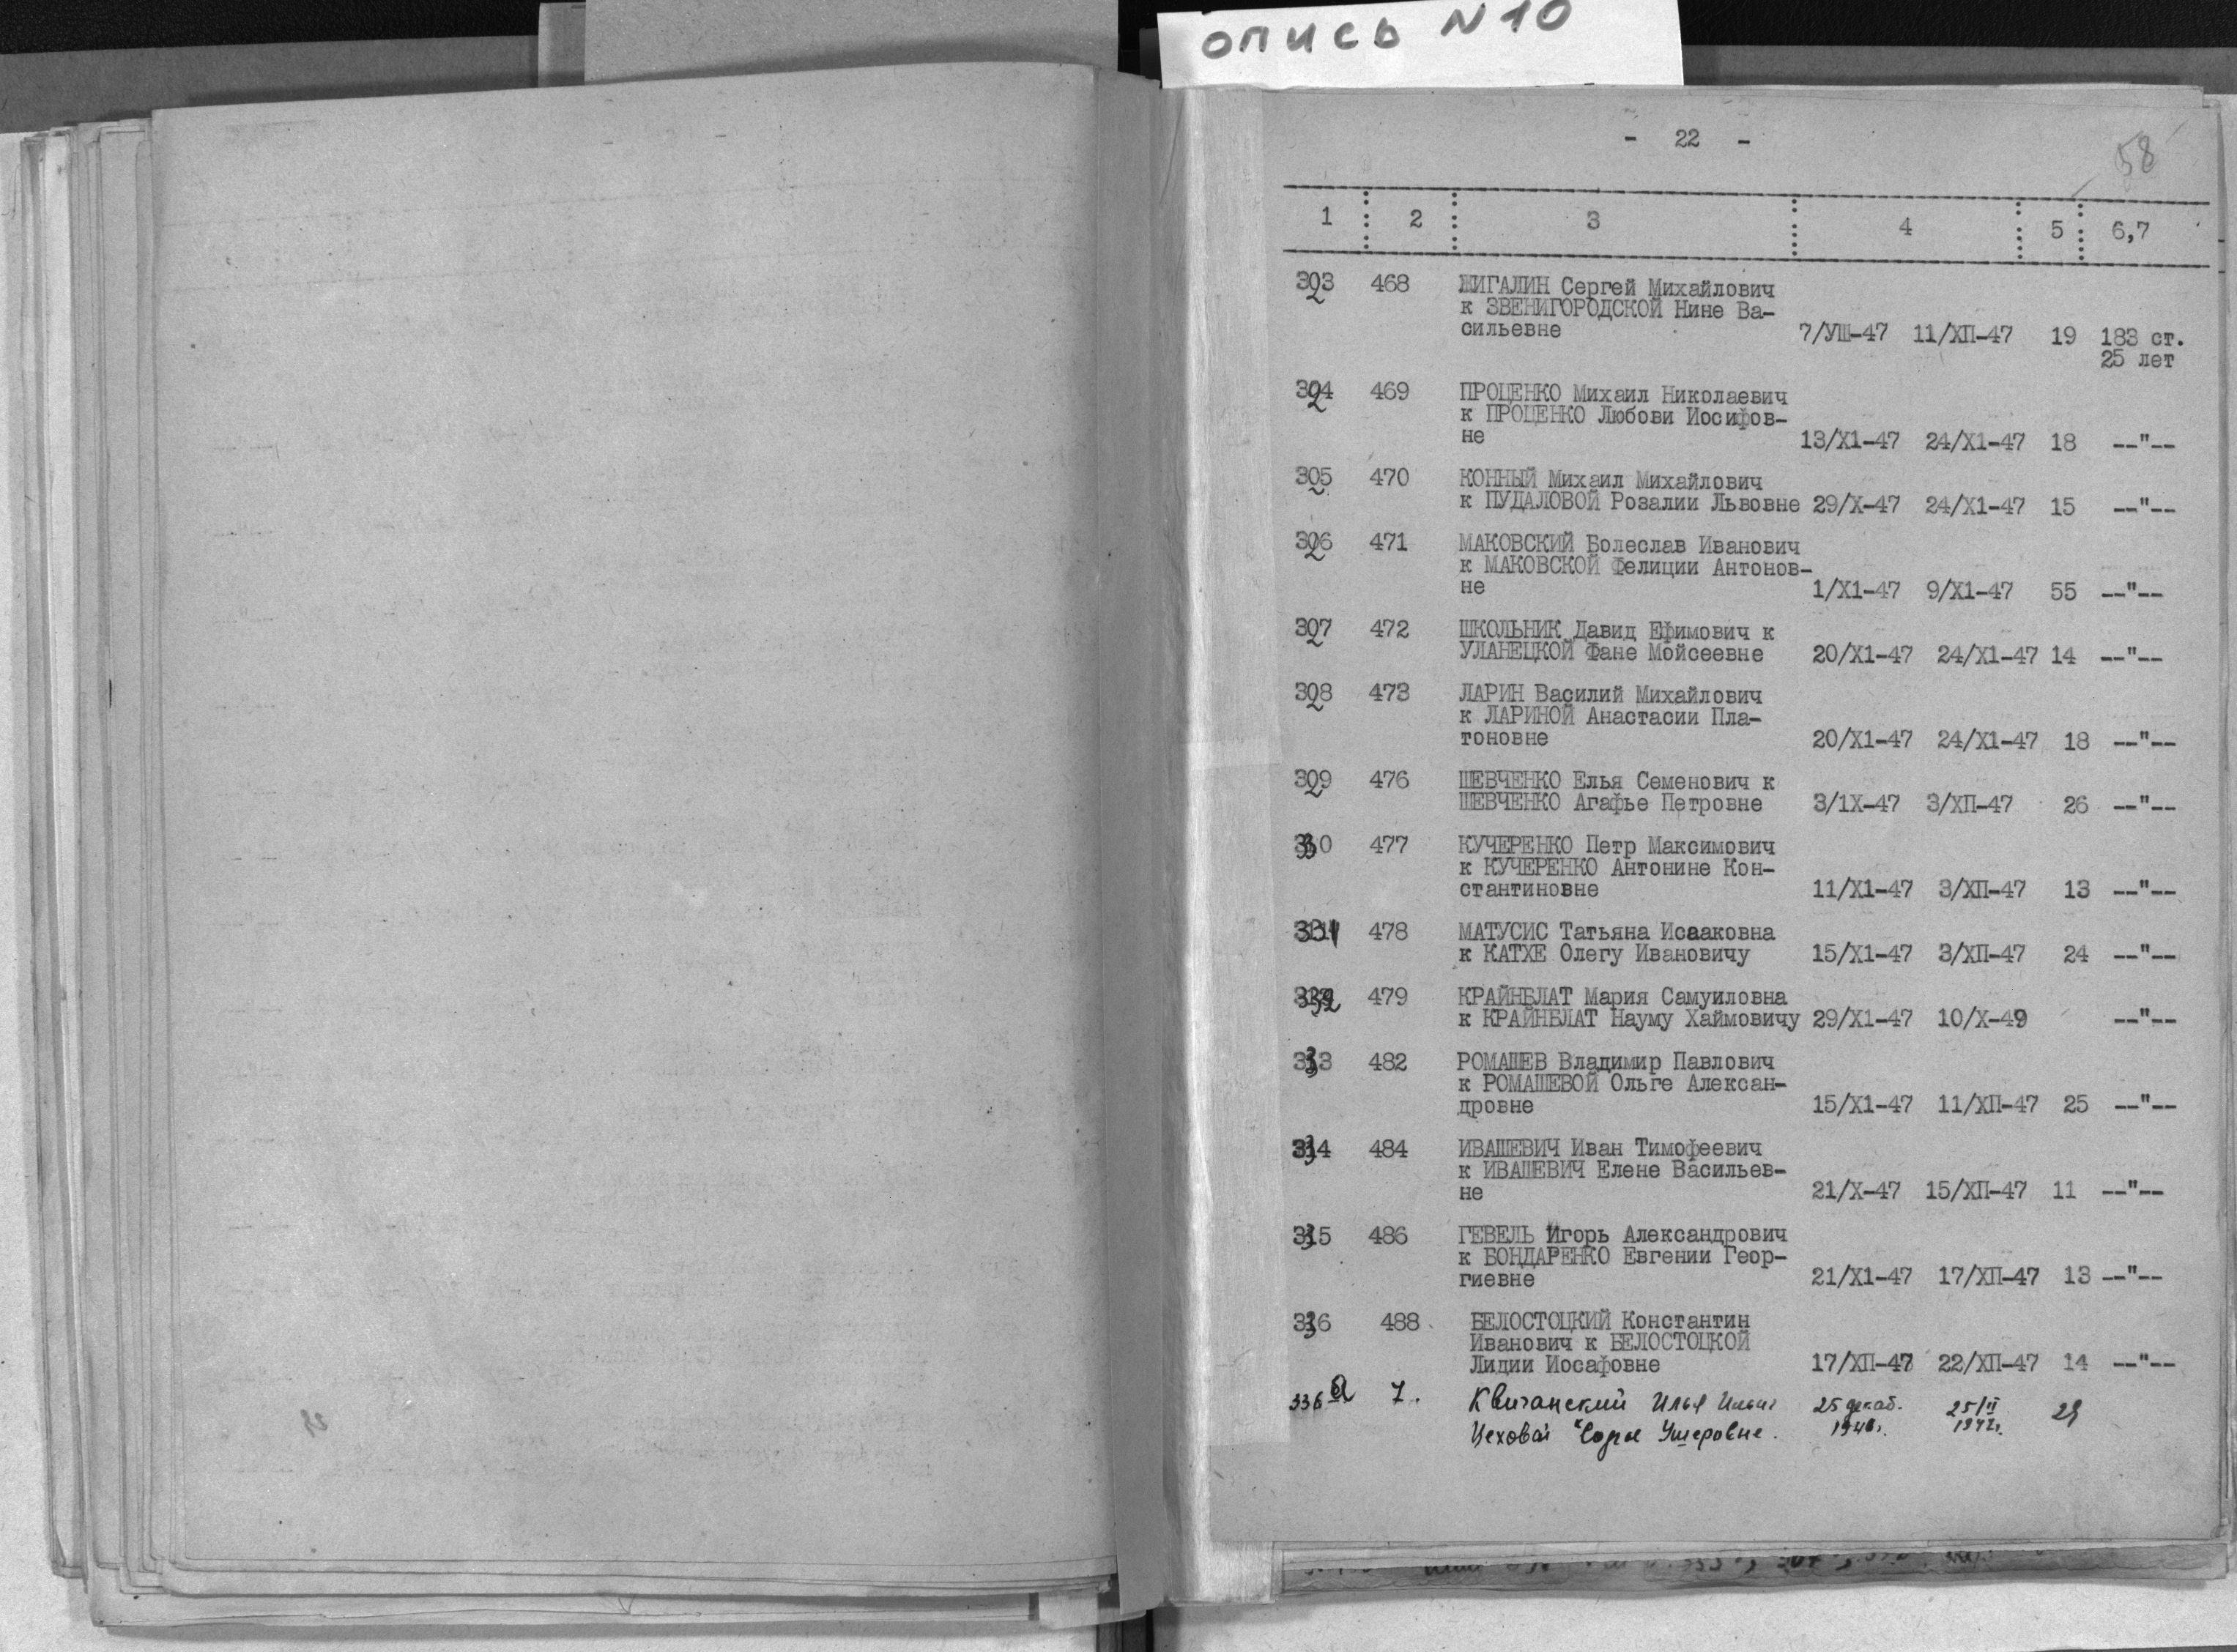 опись N10
- 22 -
58
1 2 3 4 5 6,7
323 468 ЖИГАЛИН Сергей Михайлович
к ЗВЕНИГОРОДСКОЙ Нине Ва-
сильевне 7/УШ-47 11/ХП-47 19 183 ст.
25 лет
324 469 ПРОЦЕНКО Михаил Николаевич
к ПРОЦЕНКО Любови Иосифов-
не 13/Х1-47 24/Х1-47 18 --"--
325 470 КОННЫЙ Михаил Михайлович
к ПУДАЛОВОЙ Розалии Львовне 29/Х-47 24/Х1-47 15 --"--
326 471 МАКОВСКИЙ Болеслав Иванович
к МАКОВСКОЙ Фелиции Антонов-
не 1/Х1-47 9/Х1-47 55 --"--
327 472 ШКОЛЬНИК Давид Ефимович к
УЛАНЕЦКОЙ Фане Мойсеевне 20/Х1-47 24/Х1-47 14 --"--
328 473 ЛАРИН Василий Михайлович
к ЛАРИНОЙ Анастасии Пла-
тоновне 20/Х1-47 24/Х1-47 18 --"--
329 476 ШЕВЧЕНКО Елья Семенович к
ШЕВЧЕНКО Агафье Петровне 3/1Х-47 3/ХП-47 26 --"--
330 477 КУЧЕРЕНКО Петр Максимович
к КУЧЕРЕНКО Антонине Кон-
стантиновне 11/Х1-47 3/ХП-47 13 --"--
331 478 МАТУСИС Татьяна Исааковна
к КАТХЕ Олегу Ивановичу 15/Х1-47 3/ХП-47 24 --"--
332 479 КРАЙНБЛАТ Мария Самуиловна
к КРАЙНБЛАТ Науму Хаймовичу 29/Х1-47 10/Х-49 --"--
333 482 РОМАШЕВ Владимир Павлович
к РОМАШЕВОЙ Ольге Алексан-
дровне 15/Х1-47 11/ХП-47 25 --"--
334 484 ИВАШЕВИЧ Иван Тимофеевич
к ИВАШЕВИЧ Елене Васильев-
не 21/Х-47 15/ХП-47 11 --"--
335 486 ГЕВЕЛЬ Игорь Александрович
к БОНДАРЕНКО Евгении Геор-
гиевне 21/Х1-47 17/ХП-47 13 --"--
336 488 БЕЛОСТОЦКИЙ Константин
Иванович к БЕЛОСТОЦКОЙ
Лидии Иосафовне 17/ХП-47 22/ХП-47 14 --"--
336а 7. Квичанский Илья Ильич 25 декаб. 25/II 29
Цеховой к Сарре Ушеровне. 1946г. 1947г.